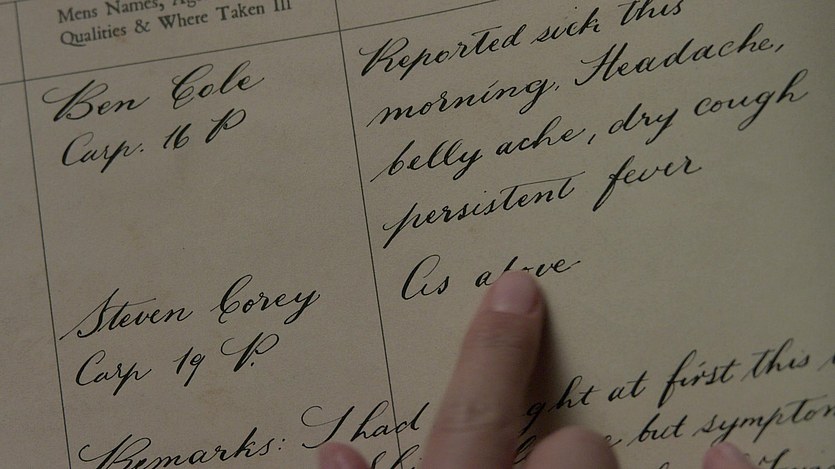 Mens Names,
Qualities & Where Taken Ill
Ben Cole
Carp. 16 P
Reported sick this
morning. Headache,
belly ache, dry cough
persistent fever
Steven Corey
Carp 19 P.
As above
Remarks: I had ght at first this
but symptom